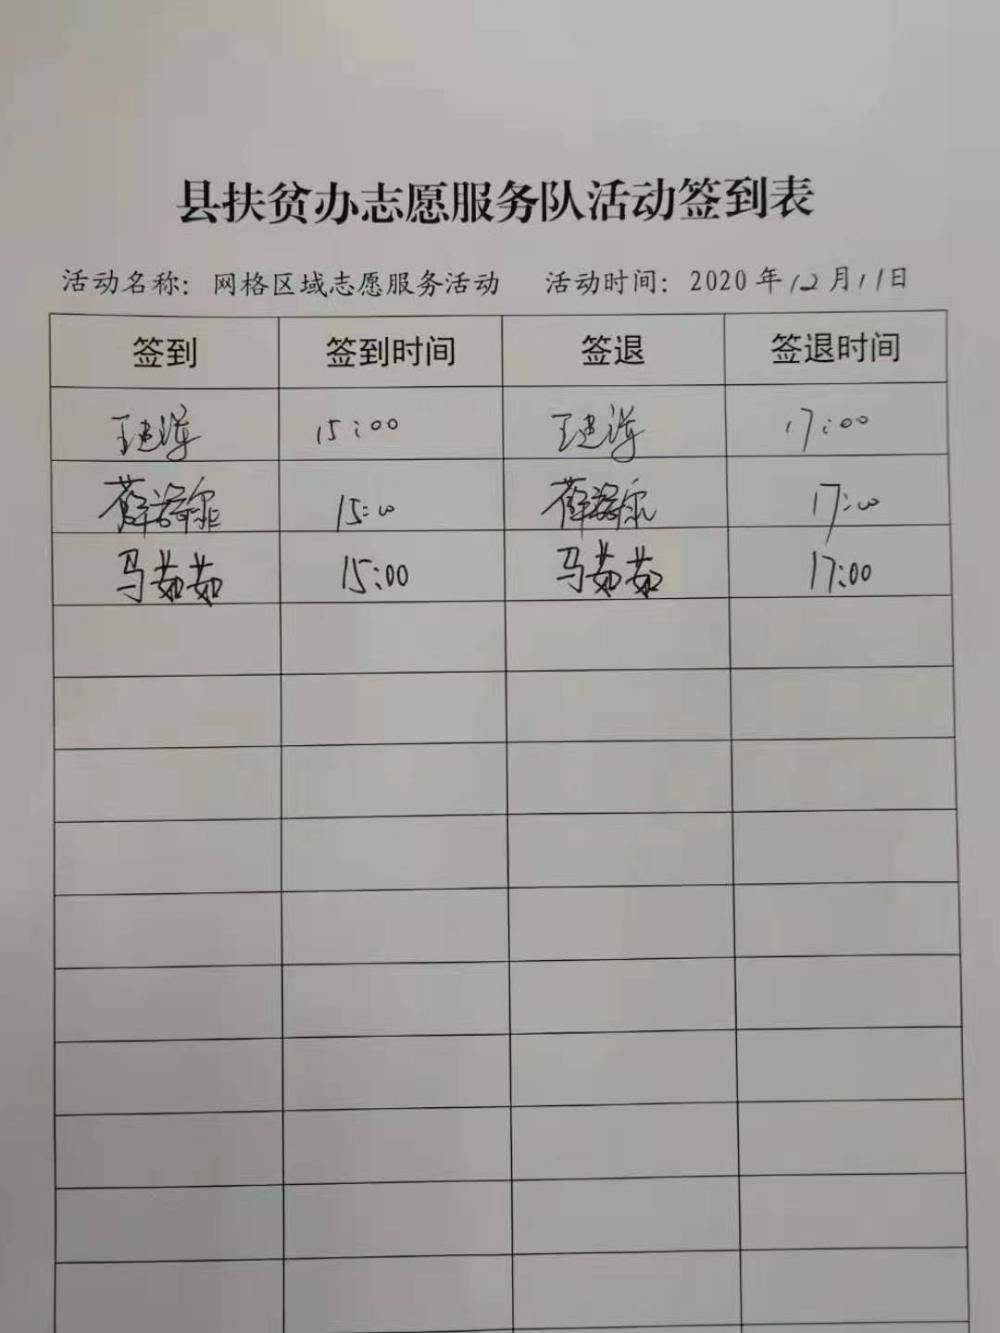 县扶贫办志愿服务队活动签到表
活动名称：网格区域志愿服务活动 活动时间：2020年12月11日
签到 签到时间 签退 签退时间
王 15:00 王 17:00
薛 15:00 薛 17:00
马茹茹 15:00 马茹茹 17:00